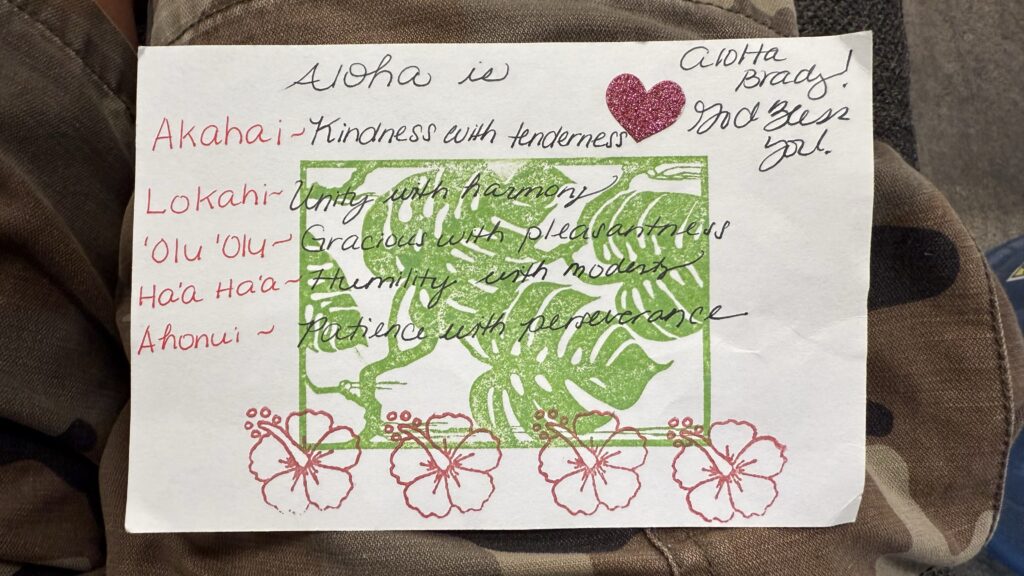 Aloha is
Aloha
Brady!
God Bless
you!
Akahai ~ Kindness with tenderness
Lokahi ~ Unity with harmony
'Olu 'Olu ~ Gracious with pleasantness
Ha'a Ha'a ~ Humility with modesty
Ahonui ~ Patience with perseverance